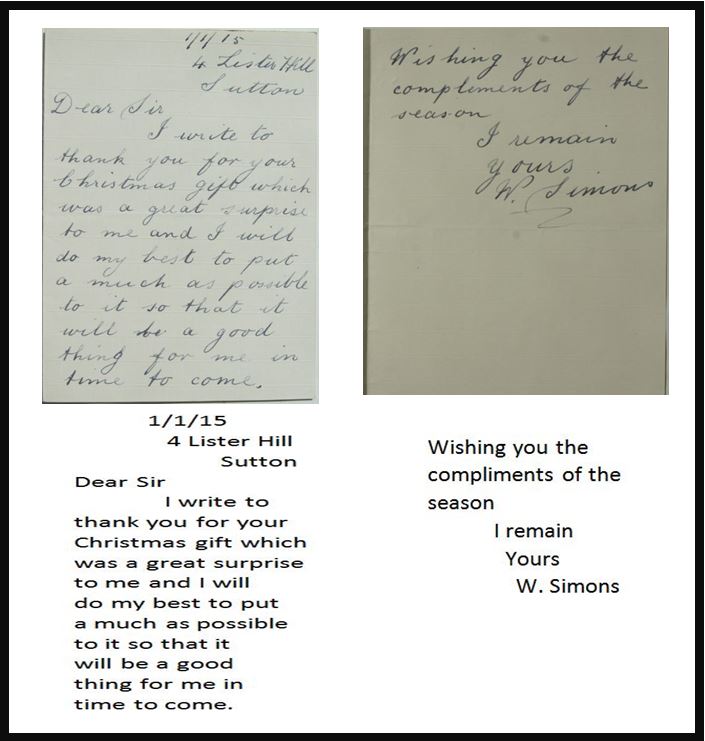 1/1/15
4 Lister Hill
Sutton
Dear Sir
I write to
thank you for your
Christmas gift which
was a great surprise
to me and I will
do my best to put
a much as possible
to it so that it
will be a good
thing for me in
time to come.
Wishing you the
complements of the
season
I remain
yours
W. Simons
1/1/15
4 Lister Hill
Sutton
Dear Sir
I write to
thank you for your
Christmas gift which
was a great surprise
to me and I will
do my best to put
a much as possible
to it so that it
will be a good
thing for me in
time to come.
Wishing you the
compliments of the
season
I remain
Yours
W. Simons